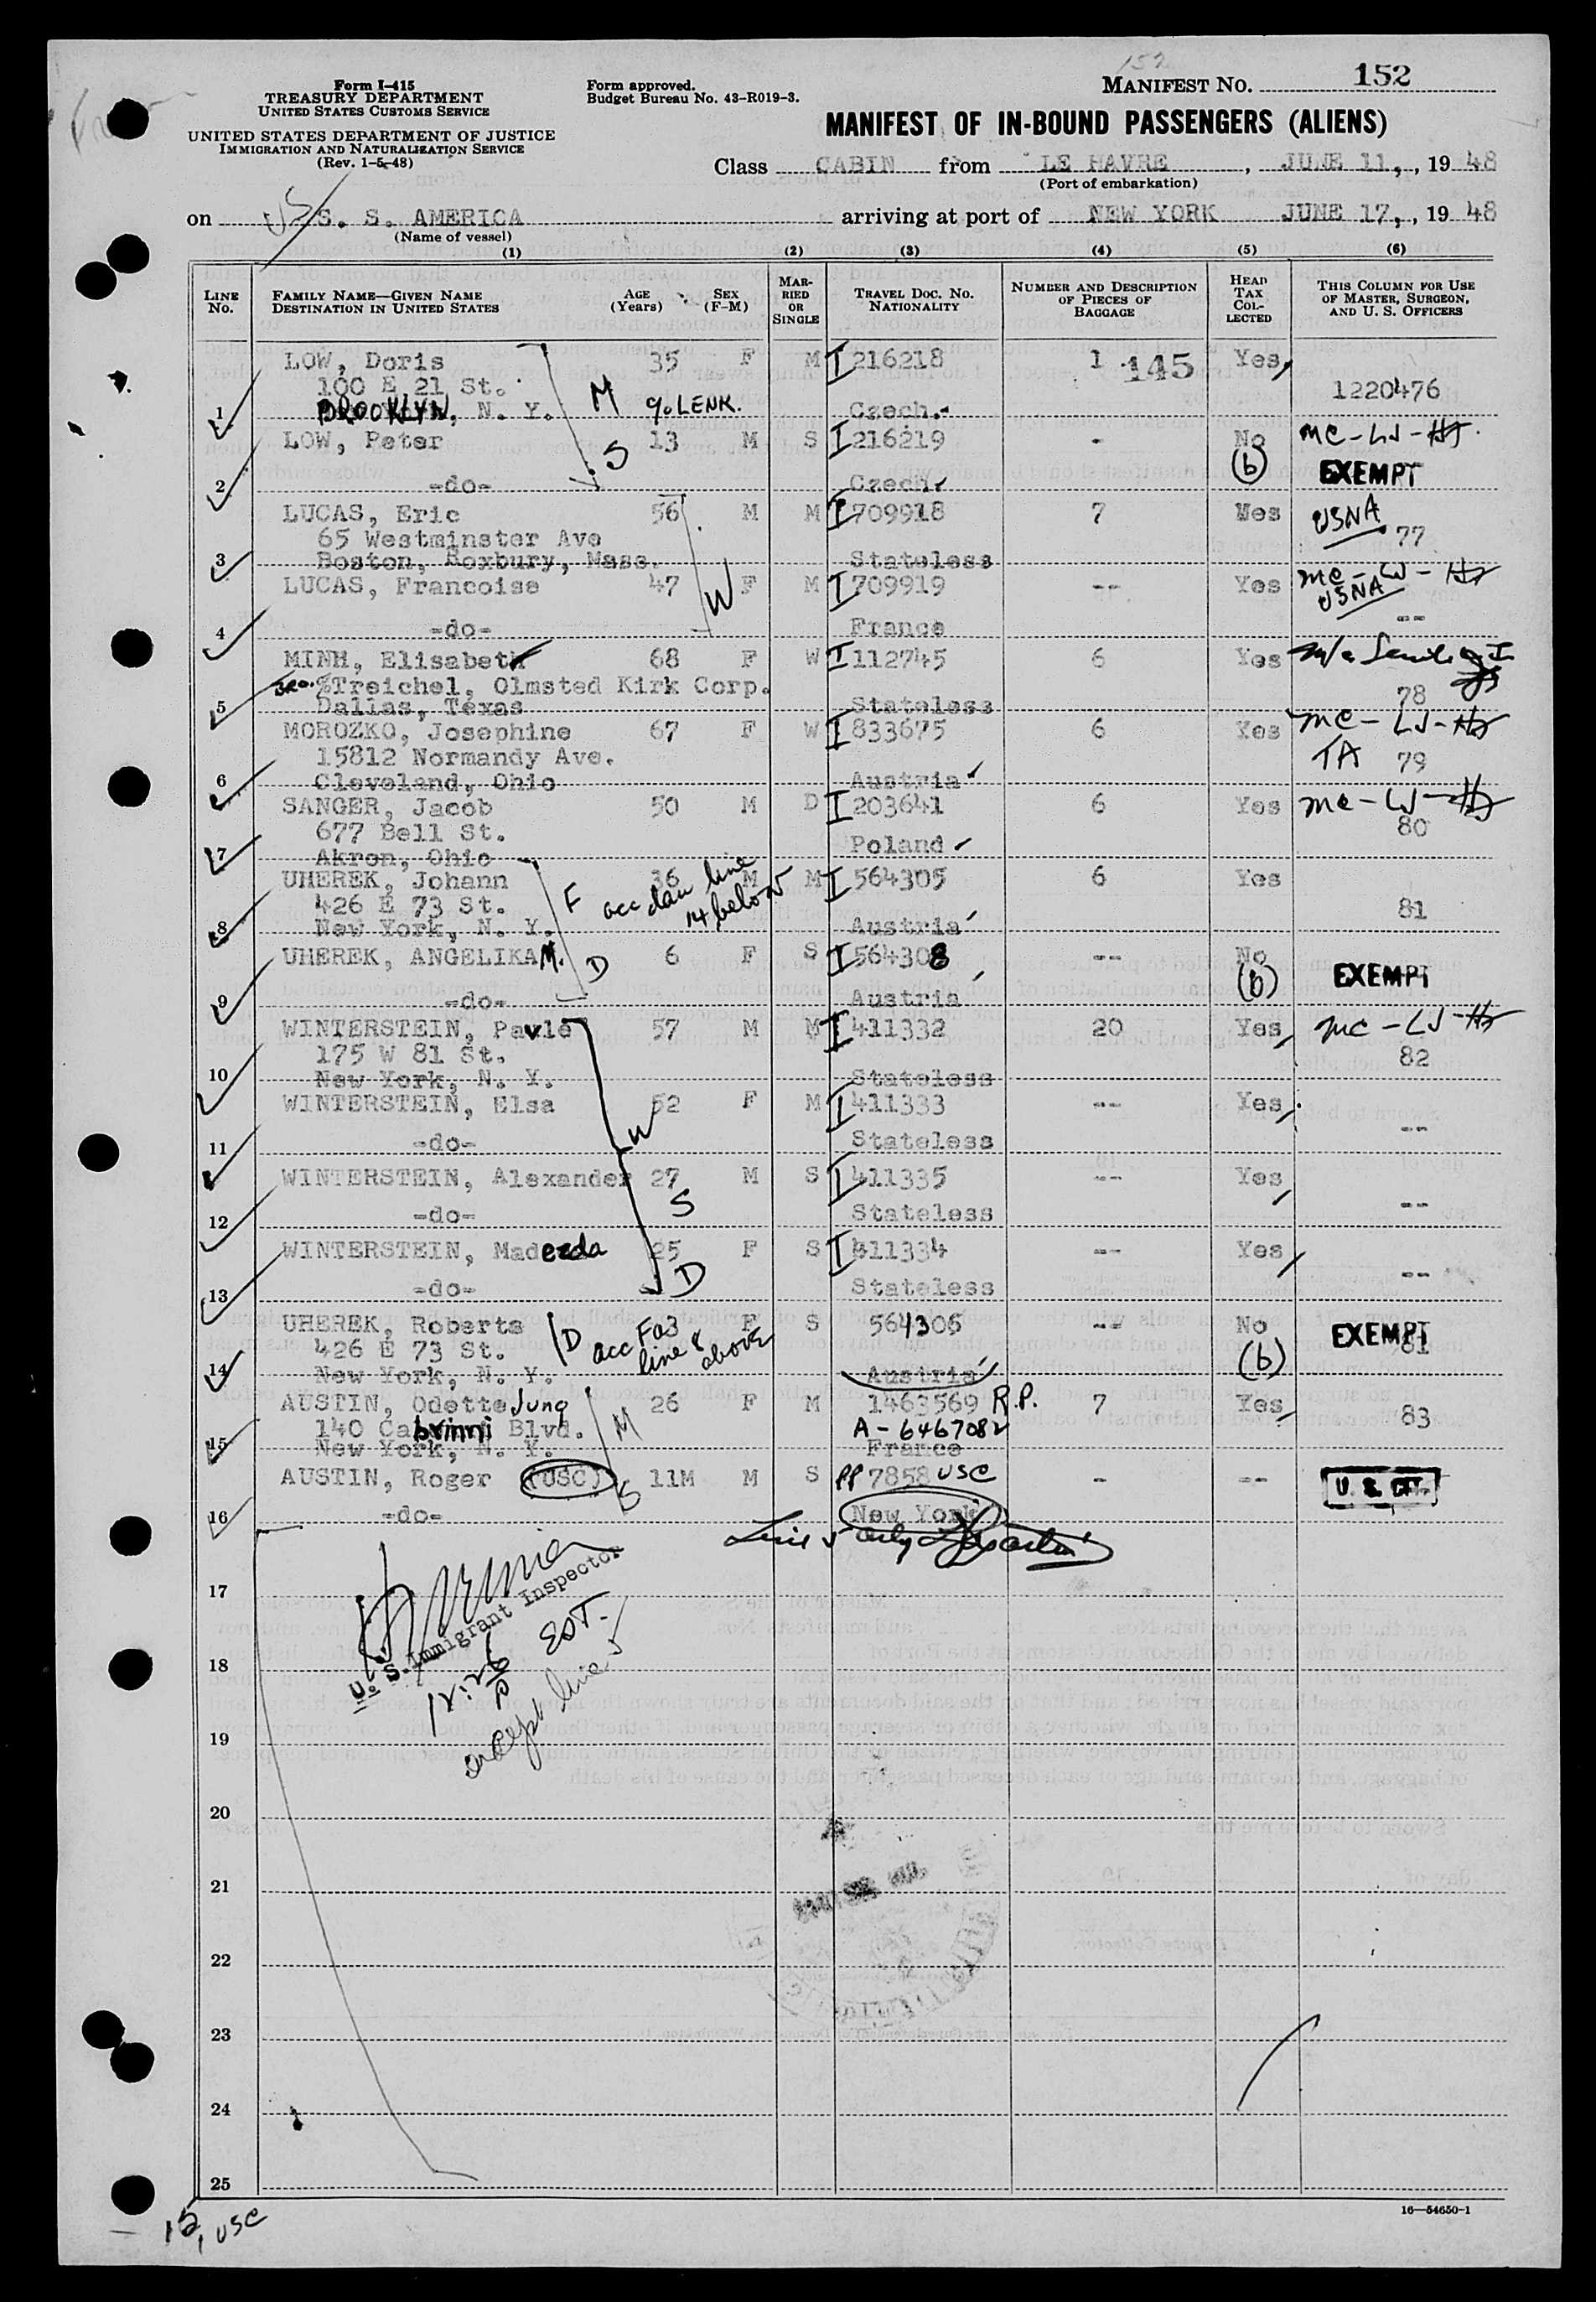 152
Form I-415
TREASURY DEPARTMENT
UNITED STATES CUSTOMS SERVICE
UNITED STATES DEPARTMENT OF JUSTICE
IMMIGRATION AND NATURALIZATION SERVICE
(Rev. 1-5-48)
Form approved.
Budget Bureau No. 43-R019-3.
MANIFEST NO. 152
MANIFEST OF IN-BOUND PASSENGERS (ALIENS)
Class CABIN from LE HAVRE, JUNE 11, , 19 48
(Port of embarkation)
on US S. S. AMERICA arriving at port of NEW YORK JUNE 17, , 19 48
(Name of vessel)
(1) (2) (3) (4) (5) (6)
LINE NO. FAMILY NAME—GIVEN NAME DESTINATION IN UNITED STATES AGE (Years) SEX (F-M) MARRIED OR SINGLE TRAVEL DOC. NO. NATIONALITY NUMBER AND DESCRIPTION OF PIECES OF BAGGAGE HEAD TAX COLLECTED THIS COLUMN FOR USE OF MASTER, SURGEON, AND U. S. OFFICERS
LOW, Doris 35 F M I 216218 1 145 Yes
100 E 21 St. M 1220476
1 BROOKLYN, N. Y. % LENK. Czech.
LOW, Peter 13 M S I 216219 - No MC-LJ-
S (b) EXEMPT
2 -do- Czech.
LUCAS, Eric 56 M M I 709918 7 Yes USNA
65 Westminster Ave 77
3 Boston, Roxbury, Mass. Stateless
LUCAS, Francoise 47 W F M I 709919 -- Yes MC-LJ-
USNA
4 -do- France --
MINH, Elisabeth 68 F W I 112745 6 Yes
BRO. %Treichel, Olmsted Kirk Corp. 78
5 Dallas, Texas Stateless
MOROZKO, Josephine 67 F W I 833675 6 Yes MC-LJ-
15812 Normandy Ave. TA 79
6 Cleveland, Ohio Austria
SANGER, Jacob 50 M D I 203641 6 Yes MC-LJ-
677 Bell St. 80
7 Akron, Ohio Poland
UHEREK, Johann 36 M M I 564305 6 Yes
426 E 73 St. F acc dau line 14 below 81
8 New York, N. Y. Austria
UHEREK, ANGELIKA M. 6 F S I 564308 -- No
D (b) EXEMPT
9 -do- Austria
WINTERSTEIN, Pavle 57 M M I 411332 20 Yes MC-LJ-
175 W 81 St. 82
10 New York, N. Y. Stateless
WINTERSTEIN, Elsa 52 F M I 411333 -- Yes
W --
11 -do- Stateless
WINTERSTEIN, Alexander 27 M S I 411335 -- Yes
S
12 -do- Stateless --
WINTERSTEIN, Madezda 25 F S I 411334 -- Yes
13 -do- D Stateless --
UHEREK, Roberta F S 564305 -- No EXEMPT
426 E 73 St. D acc Fa line 8 above (b) 81
14 New York, N. Y. Austria
AUSTIN, Odette Jung 26 F M 1463569 R.P. 7 Yes
140 Cabrinni Blvd. M A-6467082 83
15 New York, N. Y. France
AUSTIN, Roger (USC) 11M M S PP 7858 USC - -- U. S. CIT.
S
16 -do- New York
Line 5 only
17
U. S. Immigrant Inspector
18
12:26 P EST.
except line 5
19
20
21
22
23
24
25
16—54650-1
15
1 USC